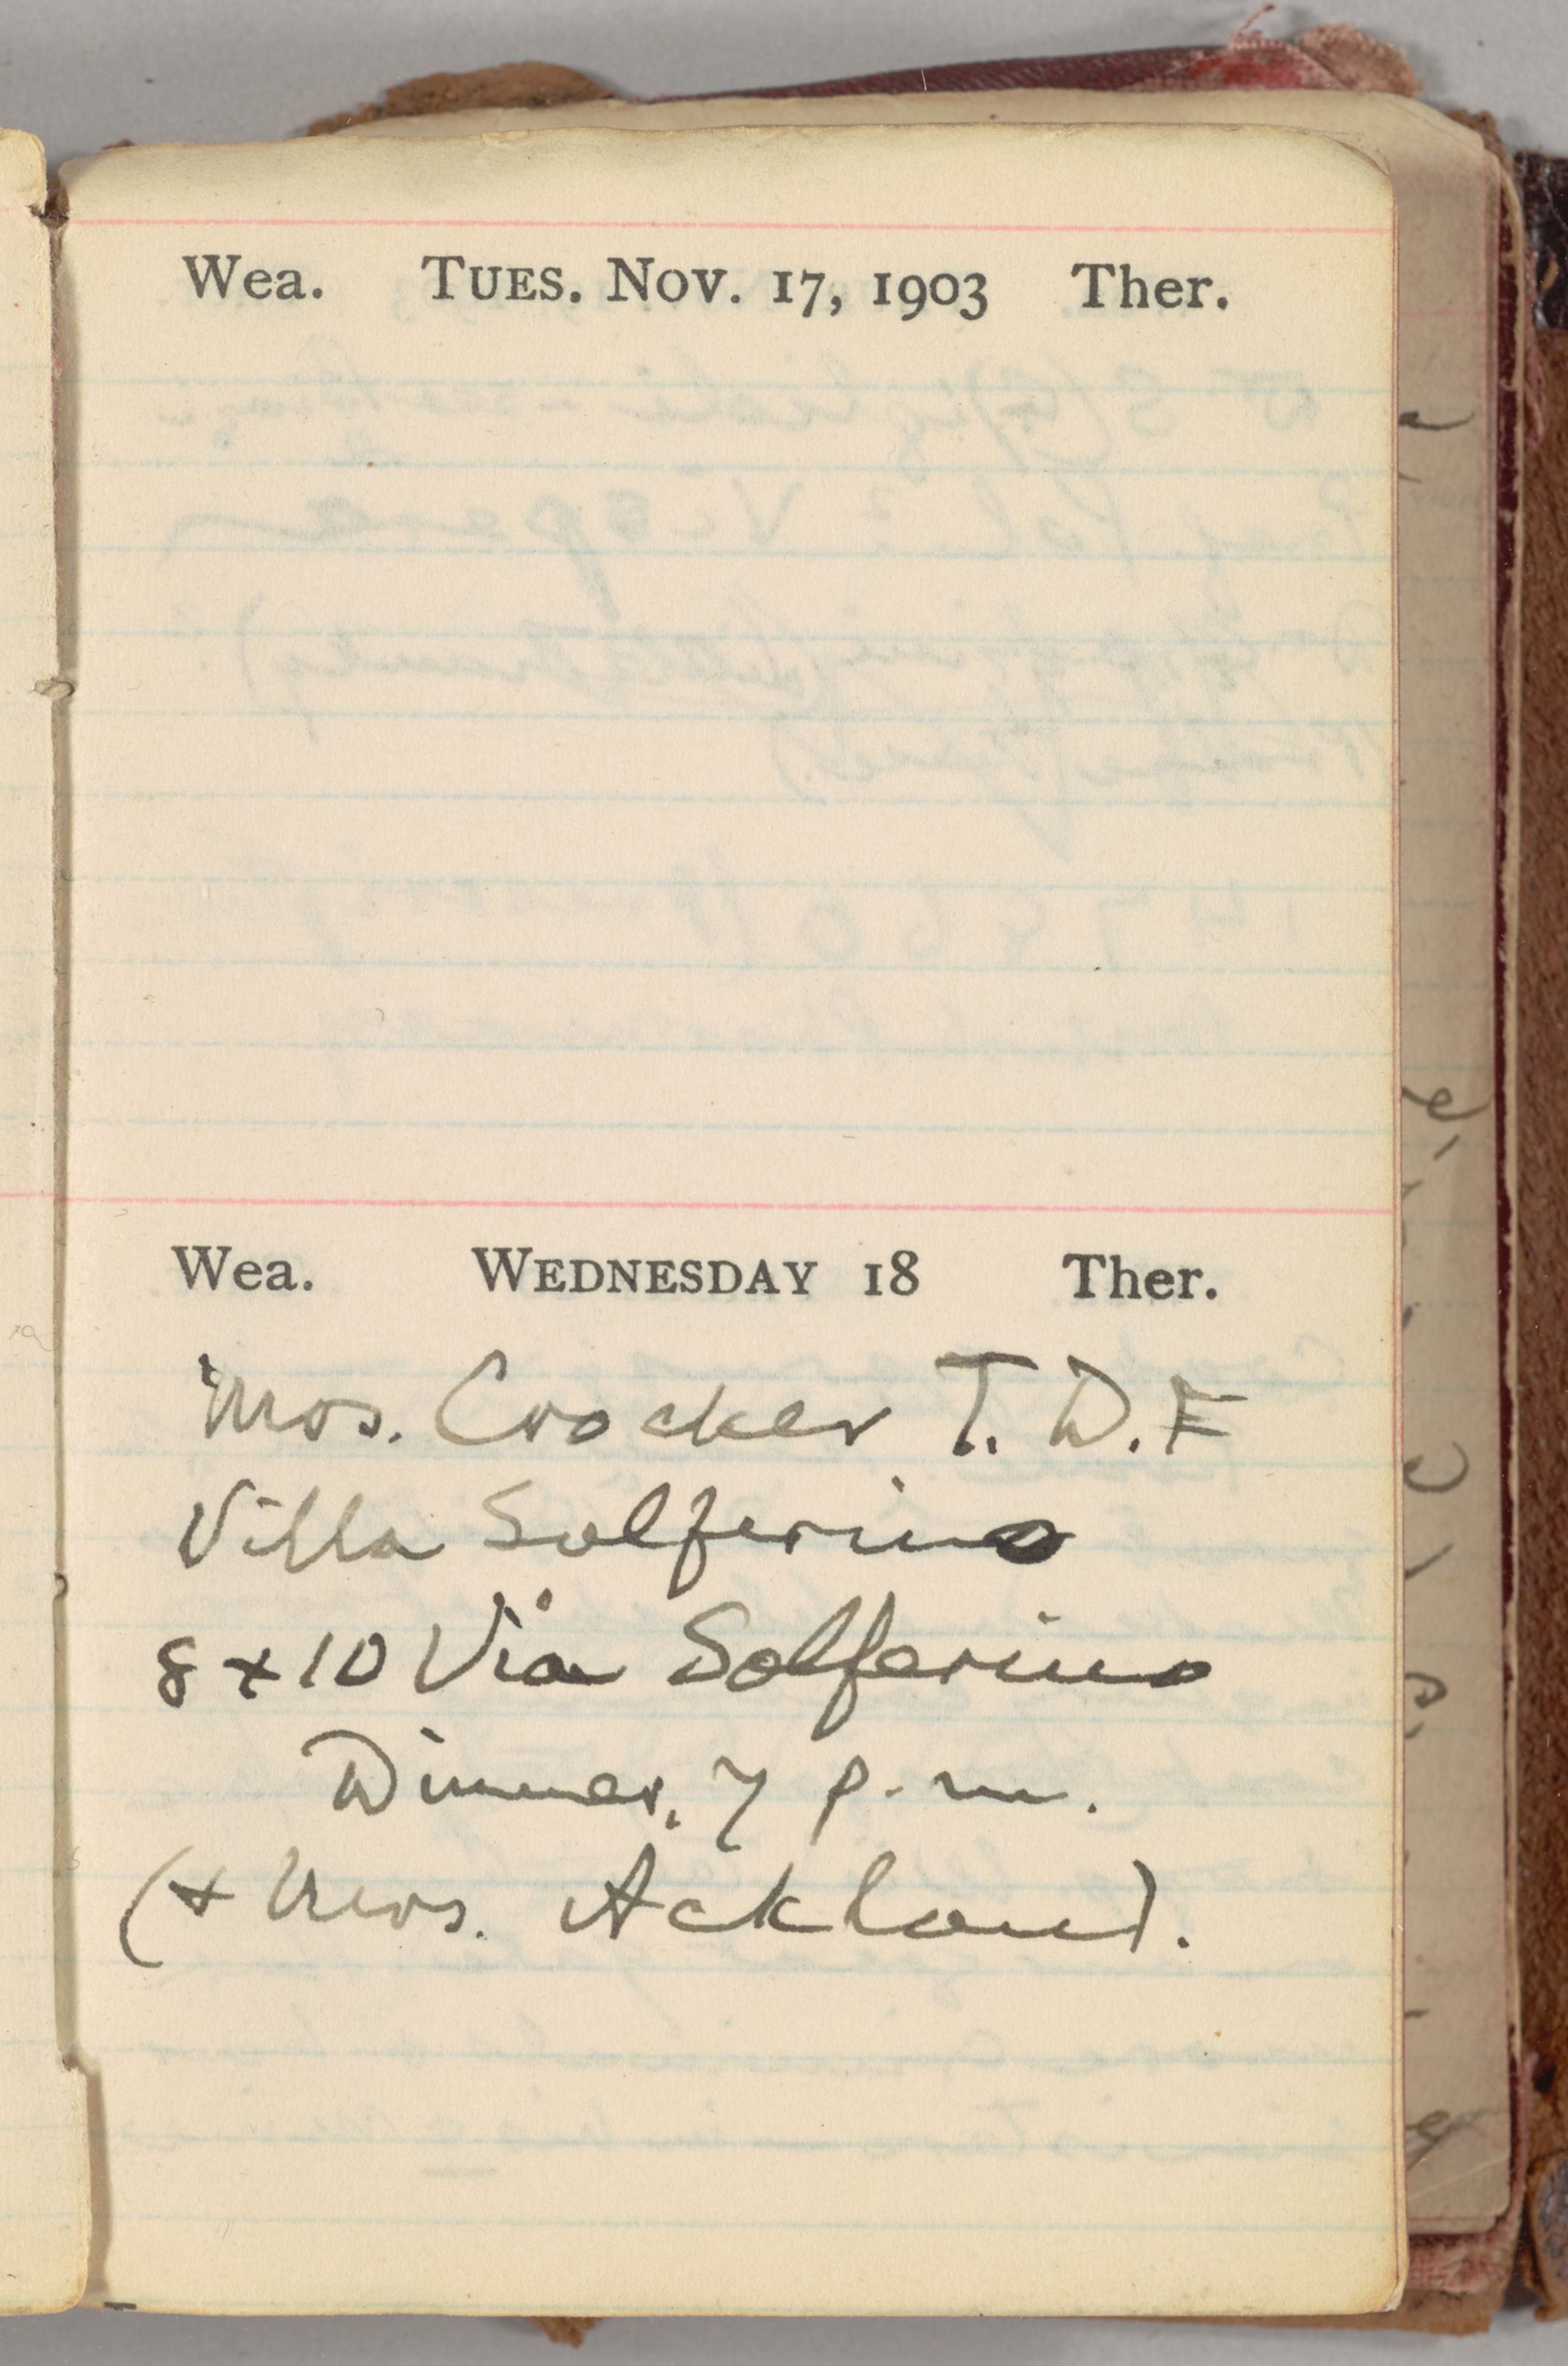 Wea. TUES. NOV. 17, 1903 Ther.
Wea. WEDNESDAY 18 Ther.
Mrs. Crocker T. D. F
Villa Solferino
8 + 10 Via Solferino
Dinner, 7 p.m.
(+ Mrs. Ackland).